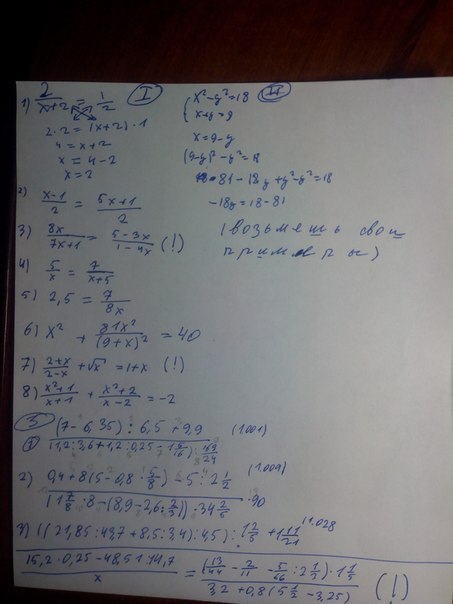 1) 2/(x+2) = 1/2 (I)
2·2 = (x+2)·1
4 = x+2
x = 4-2
x = 2
2) (x-1)/2 = (5x+1)/2
3) 8x/(7x+1) = (5-3x)/(1-4x) (!)
4) 5/x = 7/(x+5)
5) 2,5 = 7/8x
6) x² + 81x²/(9+x)² = 40
7) (2+x)/(2-x) + √x = 1+x (!)
8) (x²+1)/(x+1) + (x²+2)/(x-2) = -2
(II)
x²-y²=18
x+y=9
x=9-y
(9-y)²-y²=18
81-18y+y²-y²=18
-18y=18-81
(возьмешь свои
примеры)
(3)
(7-6,35):6,5+9,9 (1.001)
(1,2:3,6+1,2:0,25-1 5/16):169/24
2) 0,4+8(5-0,8·5/8)-5:2 1/2 (1.009)
(1 7/8·8-(8,9-2,6:2/3))·34 2/5 ·90
3) ((21,85:43,7+8,5:3,4):4,5):1 2/5+1 11/21 11.028
(15,2·0,25-48,51:14,7)/x = ((13/44-2/11-5/66:2 1/2)·1 1/5)/(3,2+0,8(5 1/2-3,25)) (!)